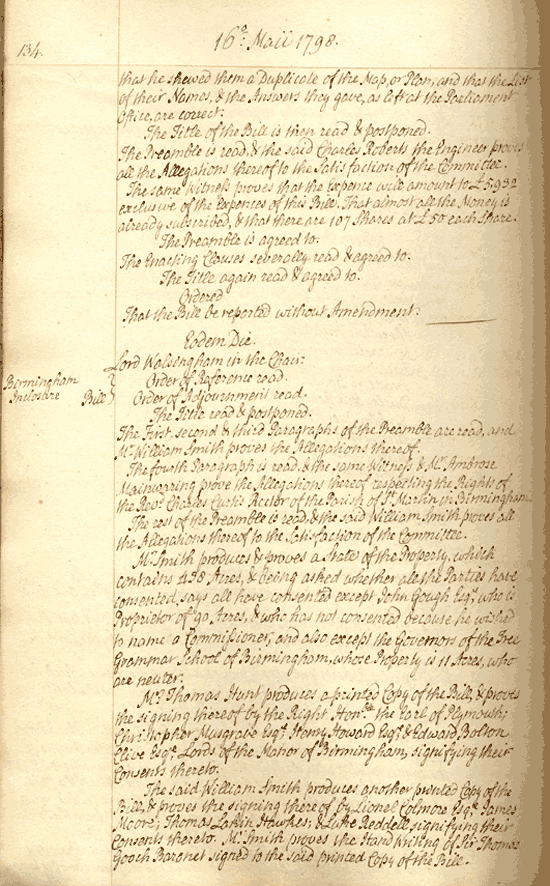 134.
16º Maii 1798.
that he shewed them a Duplicate of the Map, or Plan, and that the List
of their Names, & the Answers they gave, as left at the Parliament
Office, are correct.
The Title of the Bill is then read & postponed.
The Preamble is read, & the said Charles Roberts the Engineer proves
all the Allegations thereof to the Satisfaction of the Committee.
The same Witness proves that the Expence will amount to £5,932
exclusive of the Expences of this Bill. That almost all the Money is
already subscribed, & that there are 107 Shares at £50 each Share.
The Preamble is agreed to.
The Enacting Clauses severally read & agreed to.
The Title again read & agreed to.
Ordered
That the Bill be reported without Amendment.
Eodem Die.
Lord Walsingham in the Chair.
Birmingham
Inclosure Bill
Order of Reference read.
Order of Adjournment read.
The Title read & postponed.
The First, second & third Paragraphs of the Preamble are read, and
Mr. William Smith proves the Allegations thereof.
The fourth Paragraph is read, & the same Witness & Mr. Ambrose
Mainwaring prove the Allegations thereof respecting the Right of
the Revd. Charles Curtis Rector of the Parish of St. Martin in Birmingham.
The rest of the Preamble is read, & the said William Smith proves all
the Allegations thereof to the Satisfaction of the Committee.
Mr. Smith produces & proves a State of the Property, which
contains 438 Acres, & being asked whether all the Parties have
consented, says all have consented except John Gough Esqr. who is
Proprietor of 90 Acres, & who has not consented because he wished
to name a Commissioner, and also except the Governors of the Free
Grammar School of Birmingham, whose Property is 11 Acres, who
are neuter.
Mr. Thomas Hunt produces a printed Copy of the Bill, & proves
the signing thereof by the Right Honble. the Earl of Plymouth;
Christopher Musgrave Esqr. Henry Howard Esqr. & Edward Bolton
Clive Esqr. Lords of the Manor of Birmingham, signifying their
Consents thereto.
The said William Smith produces another printed Copy of the
Bill, & proves the signing thereof by Lionel Colmore Esqr. James
Moore; Thomas Larkin Hawkes; & Luke Reddell signifying their
Consents thereto. Mr. Smith proves the Hand Writing of Sir Thomas
Gooch Baronet signed to the said printed Copy of the Bill.